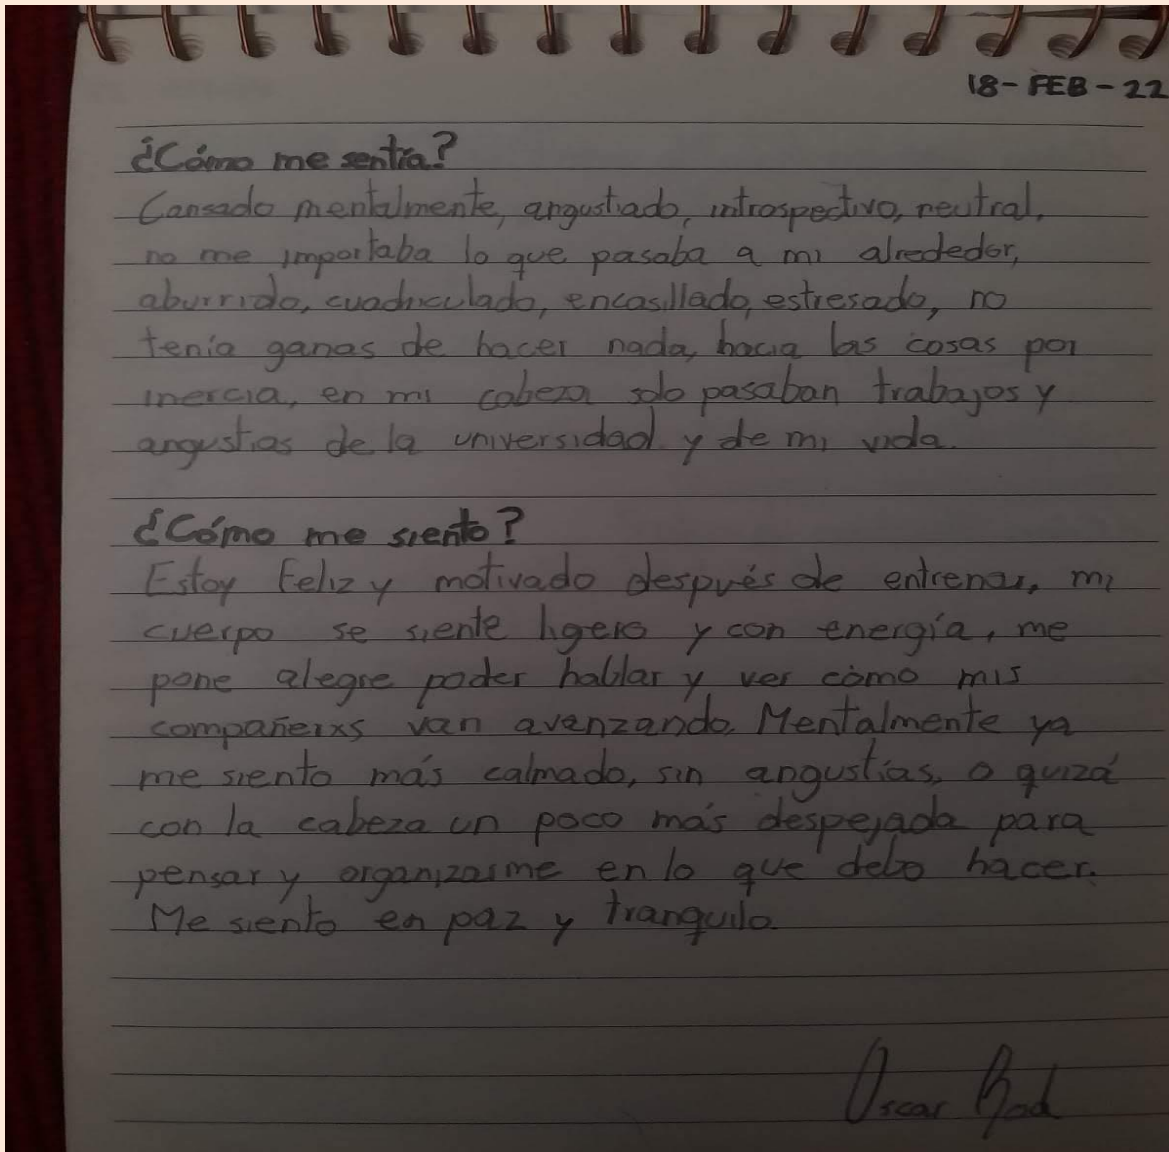 18-FEB-22
¿Cómo me sentía?
Cansado mentalmente, angustiado, introspectivo, neutral,
no me importaba lo que pasaba a mi alrededor,
aburrido, cuadriculado, encasillado, estresado, no
tenía ganas de hacer nada, hacia las cosas por
inercia, en mi cabeza solo pasaban trabajos y
angustias de la universidad y de mi vida.
¿Cómo me siento?
Estoy Feliz y motivado después de entrenar, mi
cuerpo se siente ligero y con energía, me
pone alegre poder hablar y ver cómo mis
compañeirxs van avanzando. Mentalmente ya
me siento más calmado, sin angustias, o quizá
con la cabeza un poco más despejada para
pensar y organizarme en lo que debo hacer.
Me siento en paz y tranquilo.
Oscar